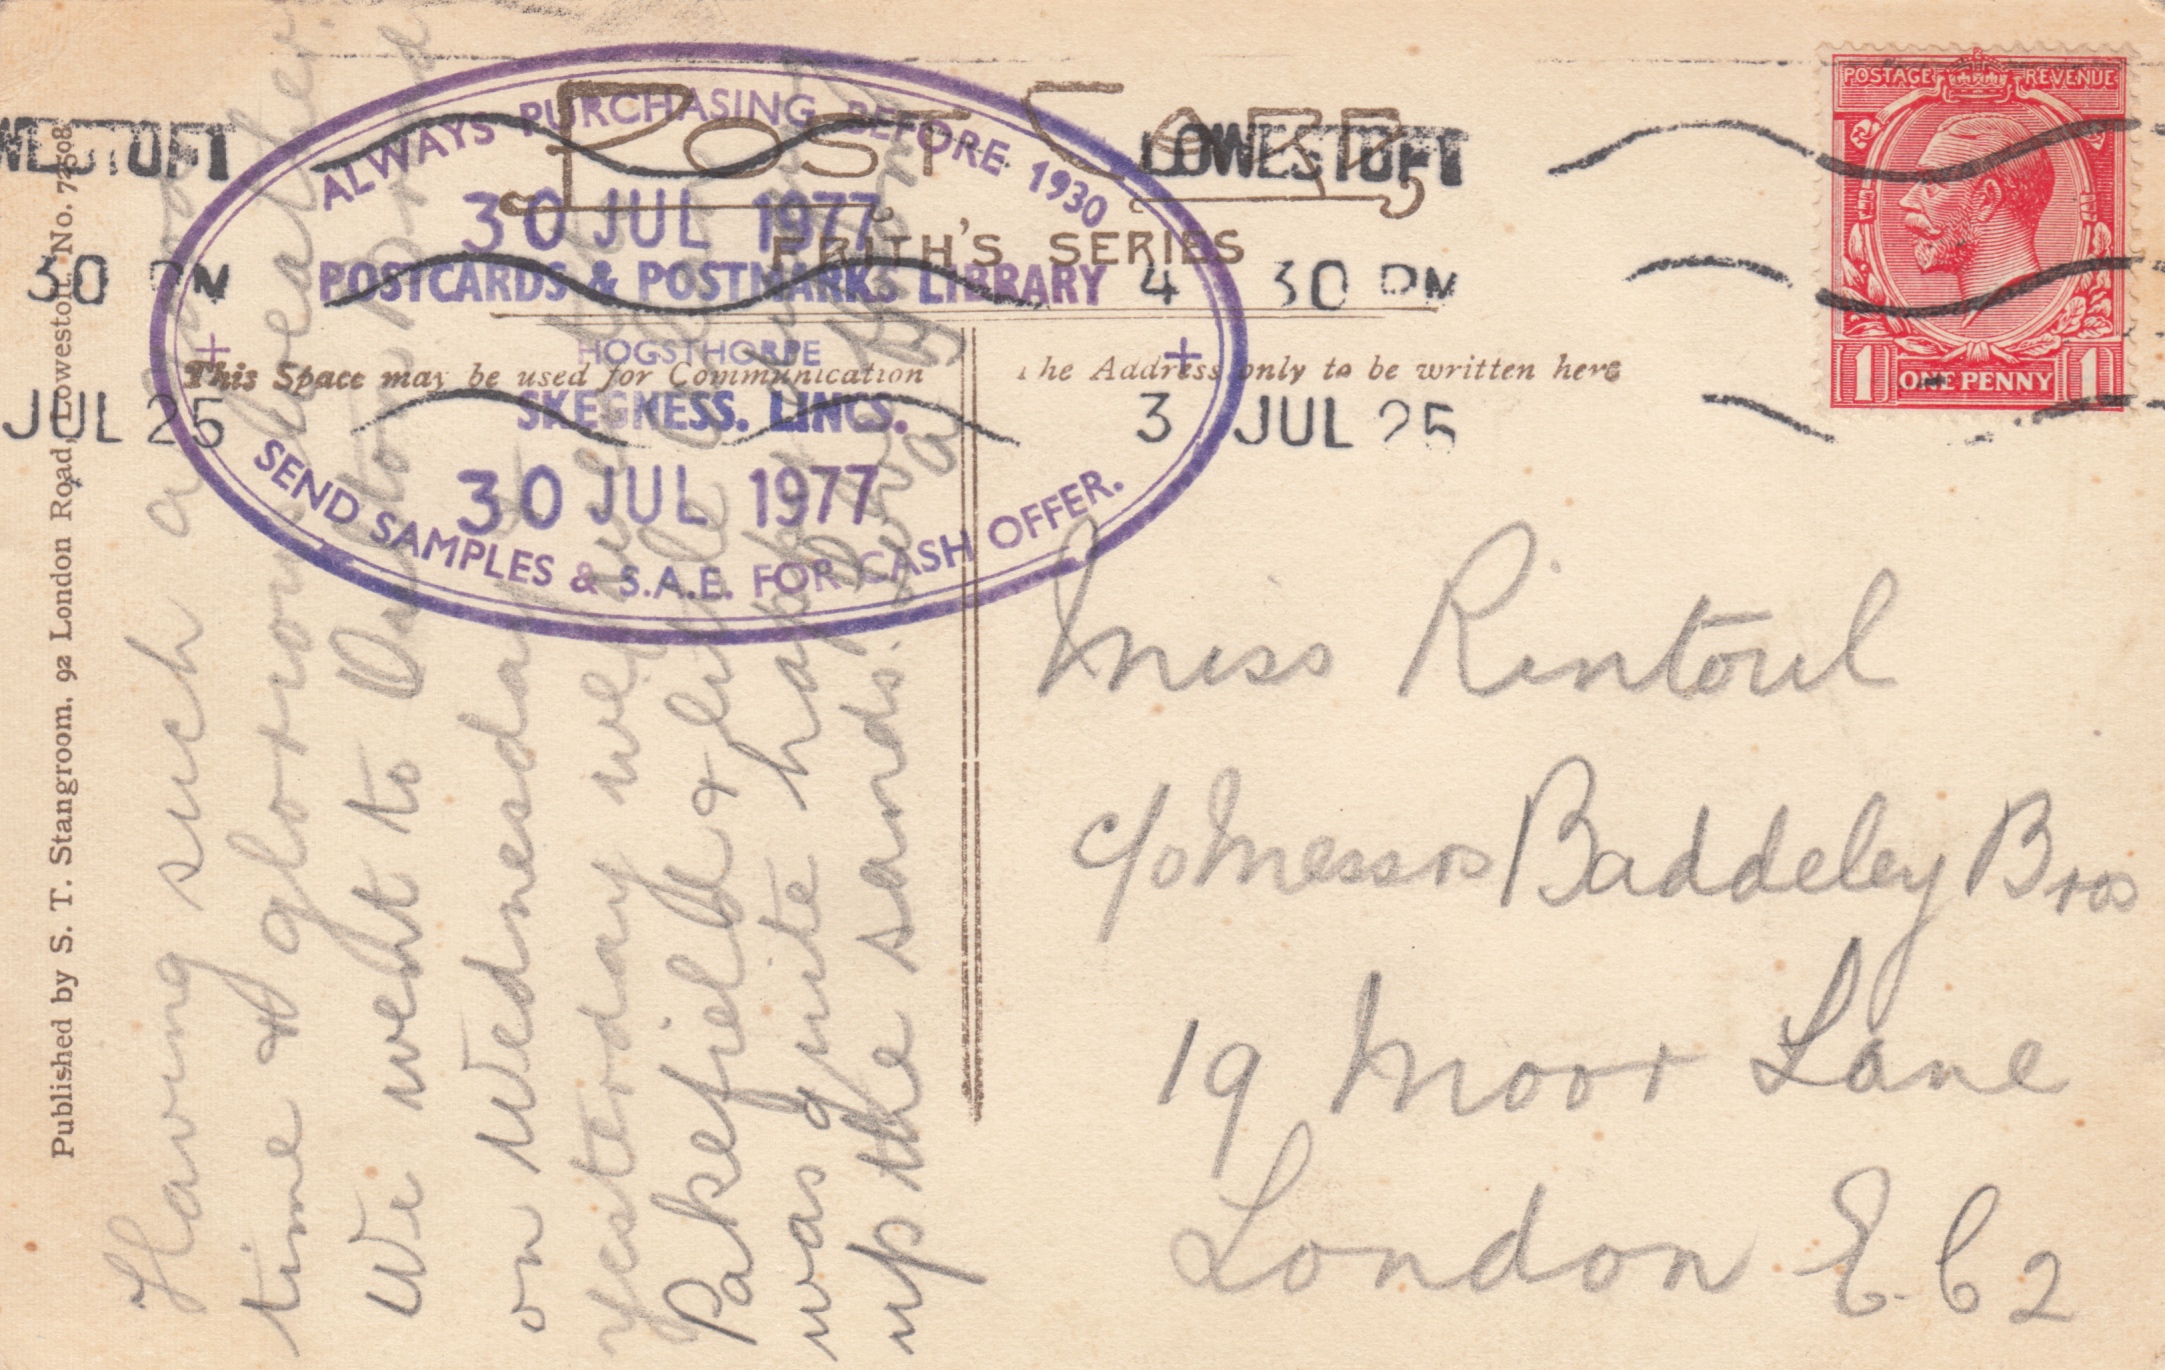 POST CARD
FRITH'S SERIES
This Space may be used for Communication
The Address only to be written here
Published by S. T. Stangroom, 92 London Road, Lowestoft. No. 72308
POSTAGE REVENUE
1 ONE PENNY 1
WESTOFT
30 PM
JUL 25
LOWESTOFT
4 30 PM
3 JUL 25
ALWAYS PURCHASING BEFORE 1930
30 JUL 1977
POSTCARDS & POSTMARKS LIBRARY
HOGSTHORPE
SKEGNESS. LINCS.
30 JUL 1977
SEND SAMPLES & S.A.E. FOR CASH OFFER.
Having such a good
time & glorious weather.
We went to Oulton Broad
on Wednesday &
yesterday we
Pakefield & little
was quite happy
up the sands.
Miss Rintoul
c/o Messrs Baddeley Bros
19 Moor Lane
London E.C2